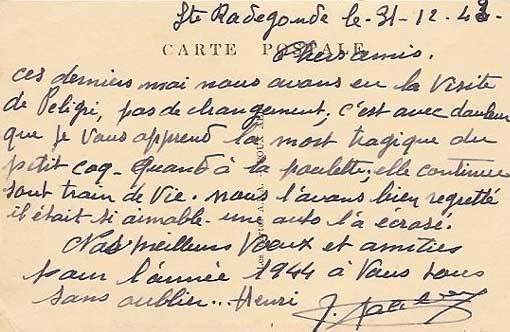 Ste Radegonde le - 31-12-43-
CARTE POSTALE
Chers amis.
ces derniers moi nous avons eu la Visite
de Peligri, pas de changement. c'est avec douleur
que je Vous apprend la mort tragique du
petit coq - Quand à la poulette, elle continue
sont train de Vie. nous l'avons bien regretté
il était si aimable - une auto l'a écrasé.
Nos meilleurs Voeux et amities
pour l'année 1944 à Vous tous
sans oublier.. Henri